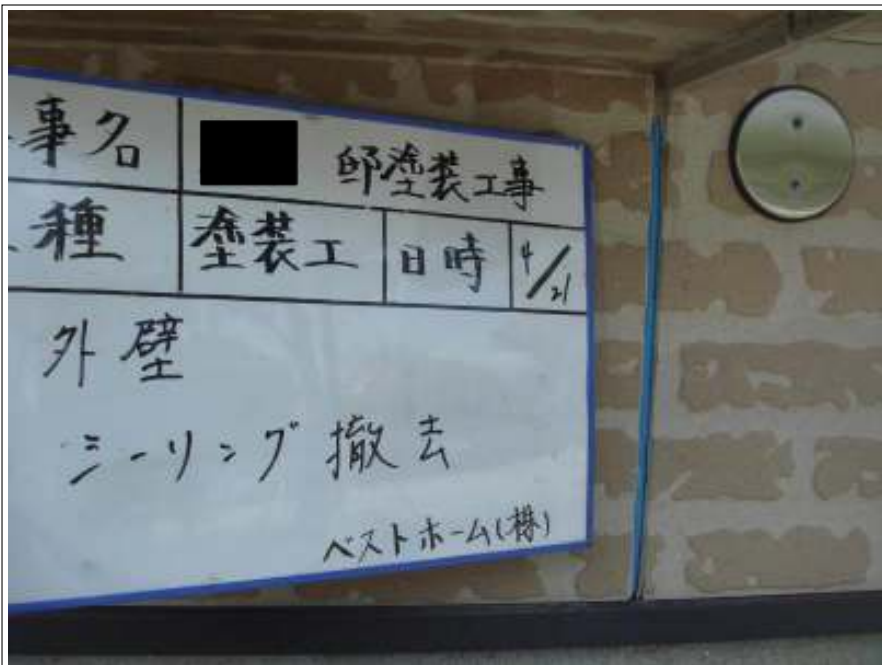 事名 邸塗装工事
種 塗装工 日時 4/21
外壁
シーリング撤去
ベストホーム(株)